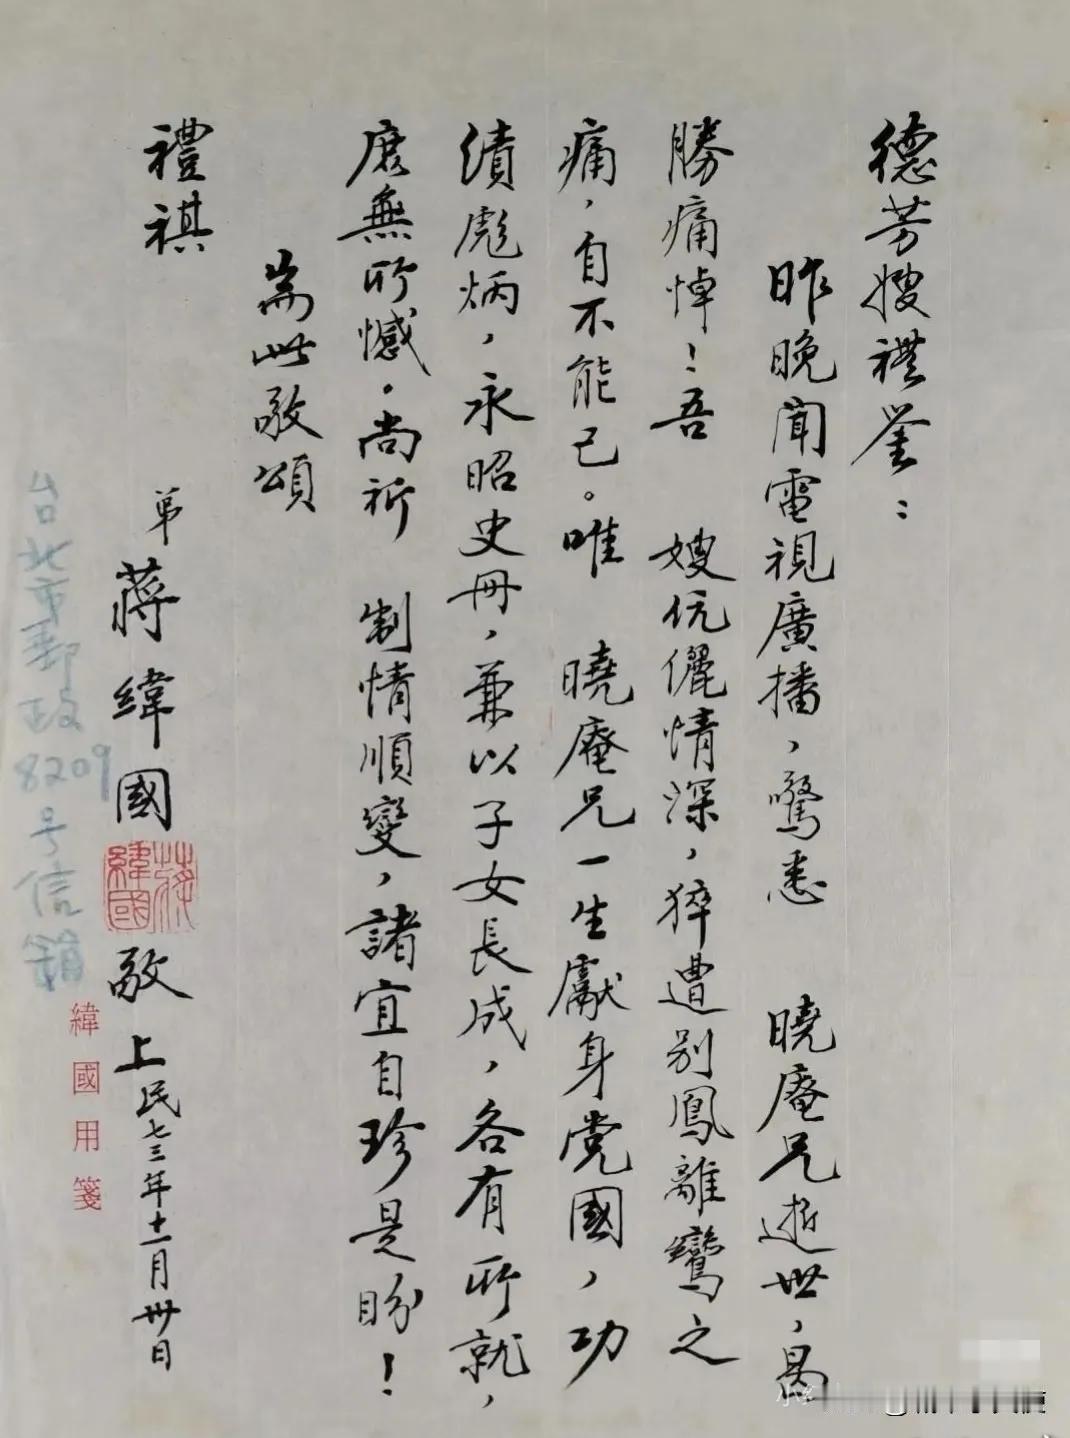 德芳嫂禮鉴：
昨晚聞電視廣播，驚悉 曉庵兄逝世，曷
勝痛悼！吾 嫂伉儷情深，猝遭別鳳離鸞之
痛，自不能已。唯 曉庵兄一生獻身党國，功
績彪炳，永昭史冊，兼以子女長成，各有所就，
庶無所憾。尚祈 制情順變，諸宜自珍是盼！
耑此敬頌
禮祺
弟 蔣緯國 敬上 民七三年十一月卅日
蔣緯國
緯國用箋
台北市郵政8209号信箱